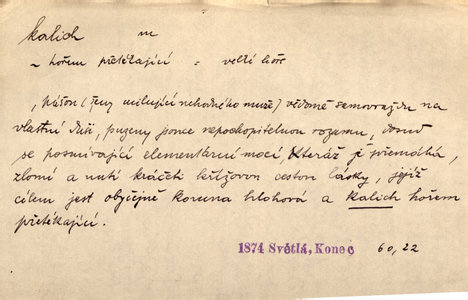 kalich m
~ hořem přetékající = velké hoře
, pášou (ženy milující nehodného muže) vědomě samovraždu na
vlastní duši, puzeny jsouce nepochopitelnou rozumu, dosud
se posmívající elementární mocí, kteráž je přemáhá,
zlomí a nutí kráčeti křížovou cestou lásky, jejíž
cílem jest obyčejně koruna trhová a kalich hořem
přetékající.
1874 Světlá, Konec 60,22